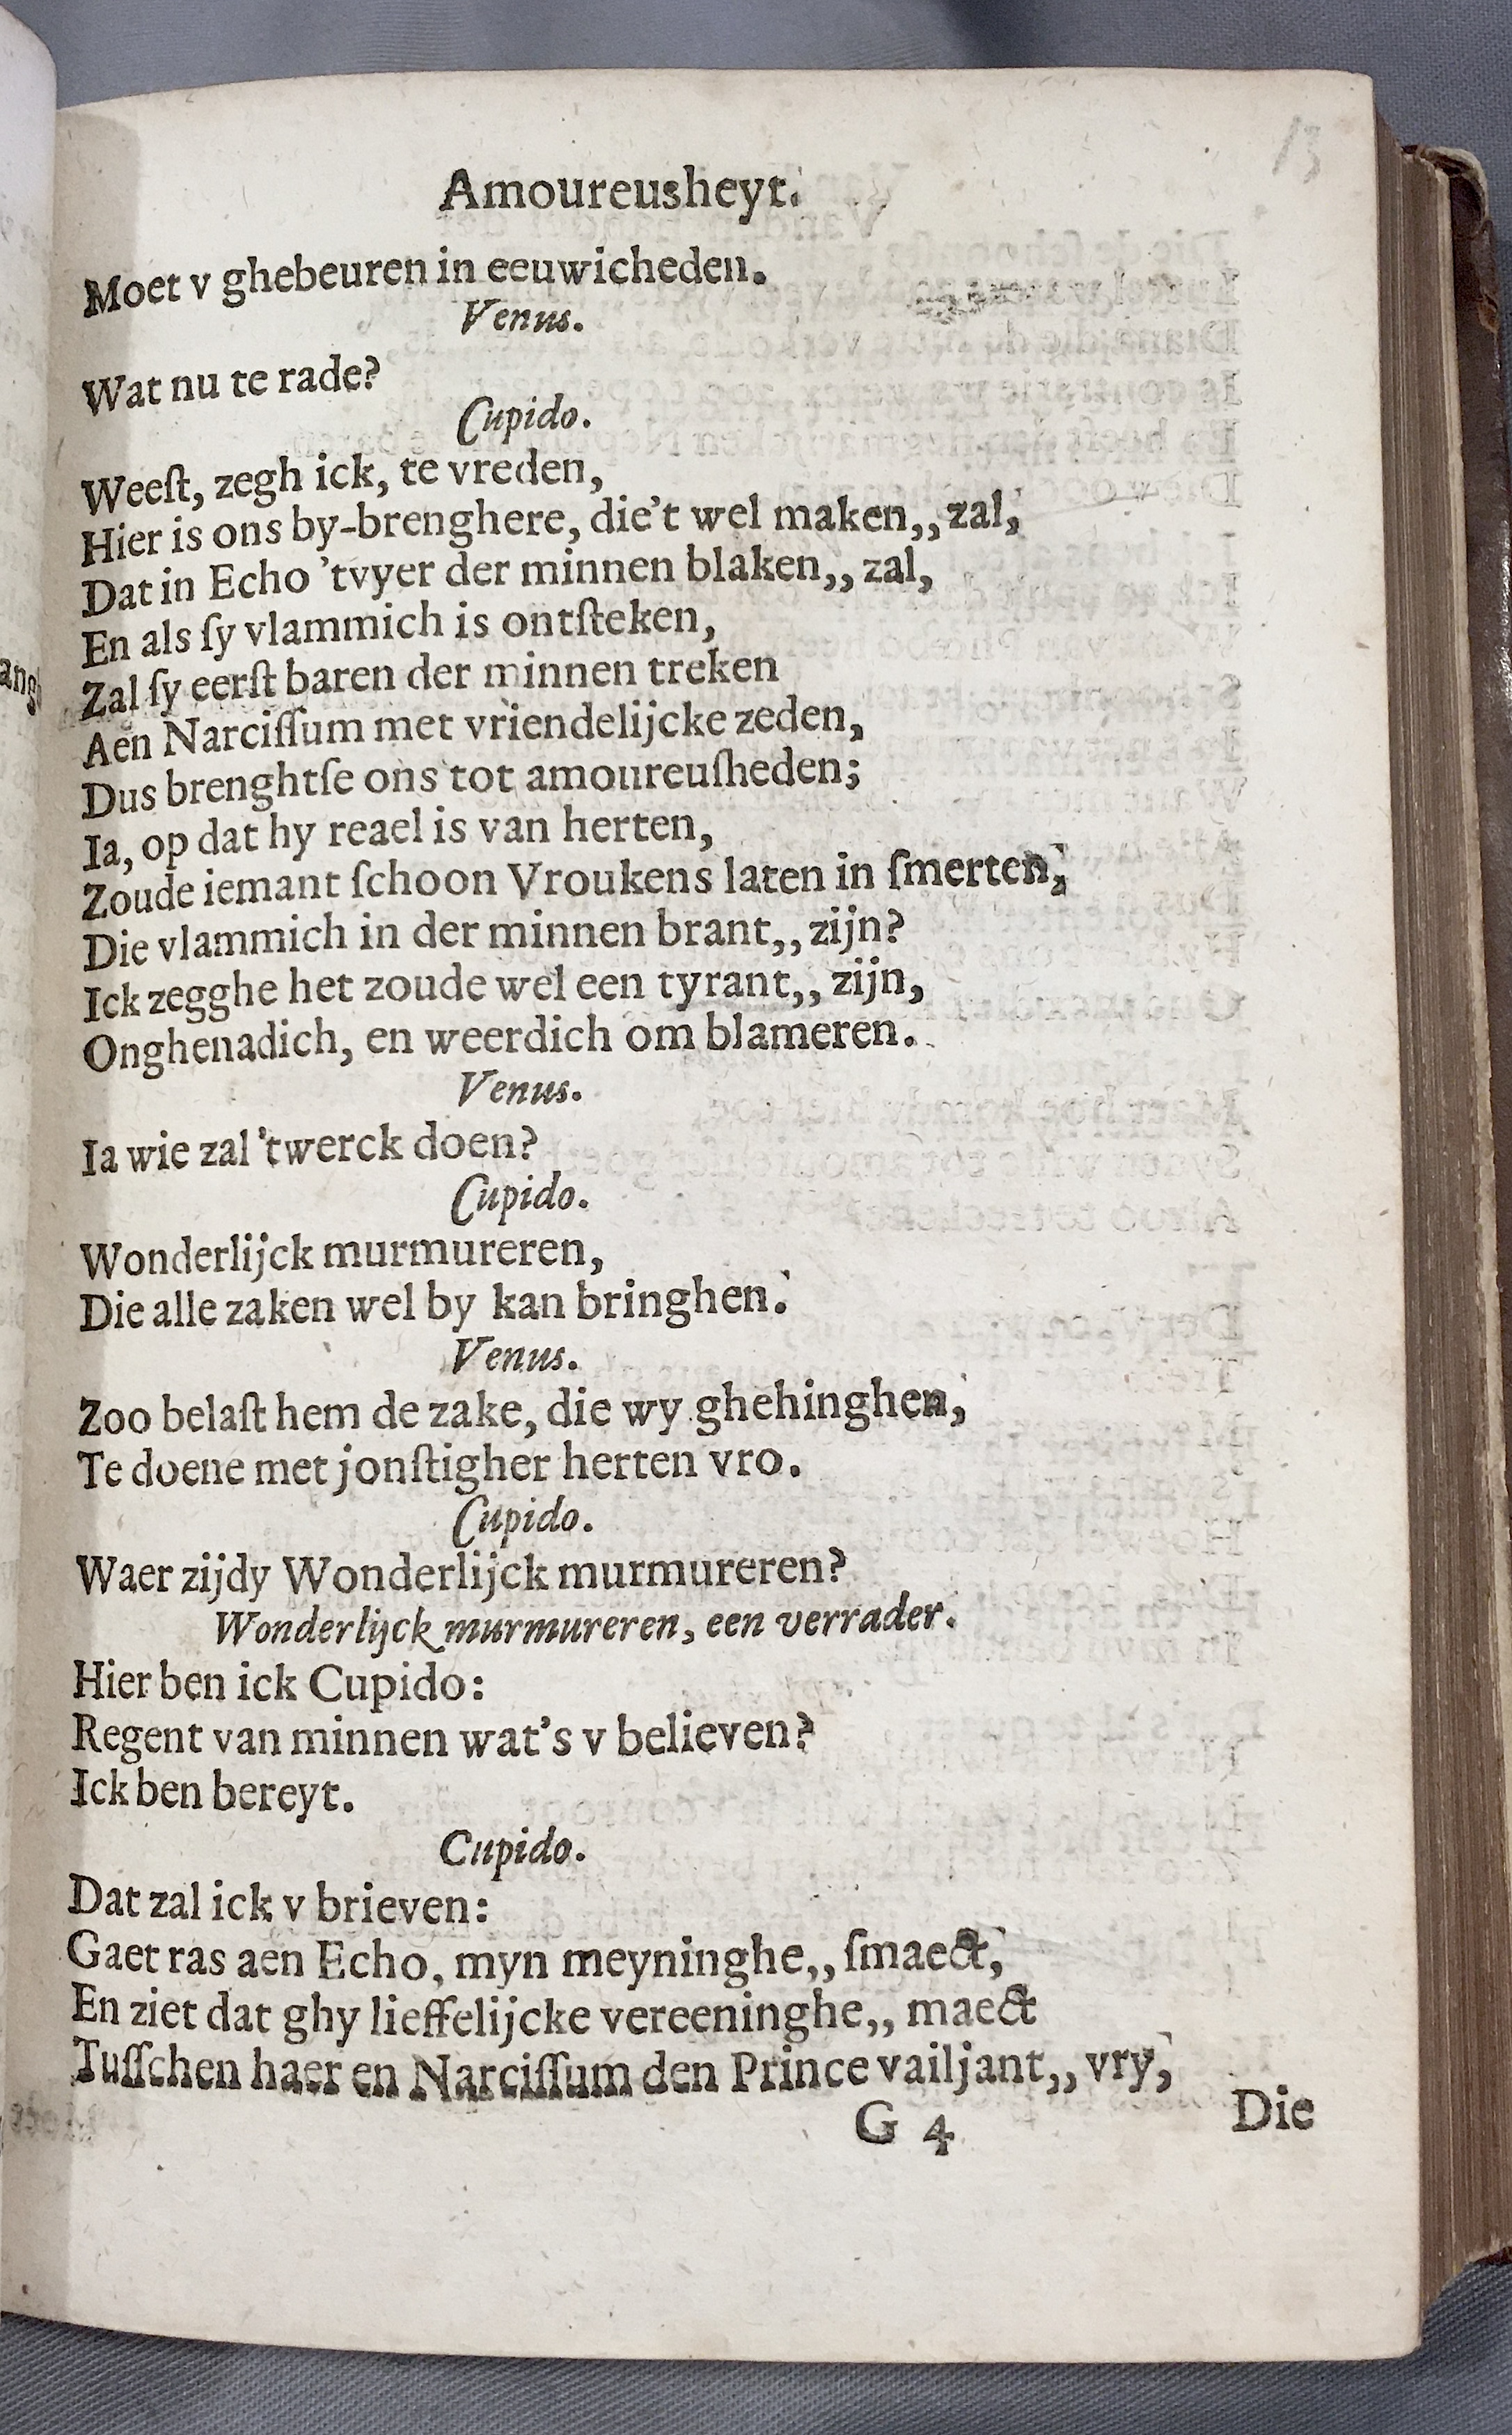 13
Amoureusheyt.
Moet v ghebeuren in eeuwicheden.
Venus.
Wat nu te rade?
Cupido.
Weeſt, zegh ick, te vreden,
Hier is ons by-brenghere, die't wel maken,, zal,
Dat in Echo 'tvyer der minnen blaken,, zal,
En als ſy vlammich is ontſteken,
Zal ſy eerſt baren der minnen treken
Aen Narciſſum met vriendelijcke zeden,
Dus brenghtſe ons tot amoureuſheden;
Ia, op dat hy reael is van herten,
Zoude iemant ſchoon Vroukens laten in ſmerten,
Die vlammich in der minnen brant,, zijn?
Ick zegghe het zoude wel een tyrant,, zijn,
Onghenadich, en weerdich om blameren.
Venus.
Ia wie zal 'twerck doen?
Cupido.
Wonderlijck murmureren,
Die alle zaken wel by kan bringhen.
Venus.
Zoo belaſt hem de zake, die wy ghehinghen,
Te doene met jonſtigher herten vro.
Cupido.
Waer zijdy Wonderlijck murmureren?
Wonderlijck murmureren, een verrader.
Hier ben ick Cupido:
Regent van minnen wat's v believen?
Ick ben bereyt.
Cupido.
Dat zal ick v brieven:
Gaet ras aen Echo, myn meyninghe,, ſmaect,
En ziet dat ghy lieffelijcke vereeninghe,, maect
Tuſſchen haer en Narciſſum den Prince vailjant,, vry,
G 4
Die